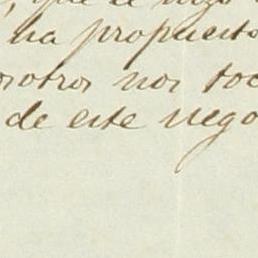 que el
ha propuesto
osotros nos toc
de este nego